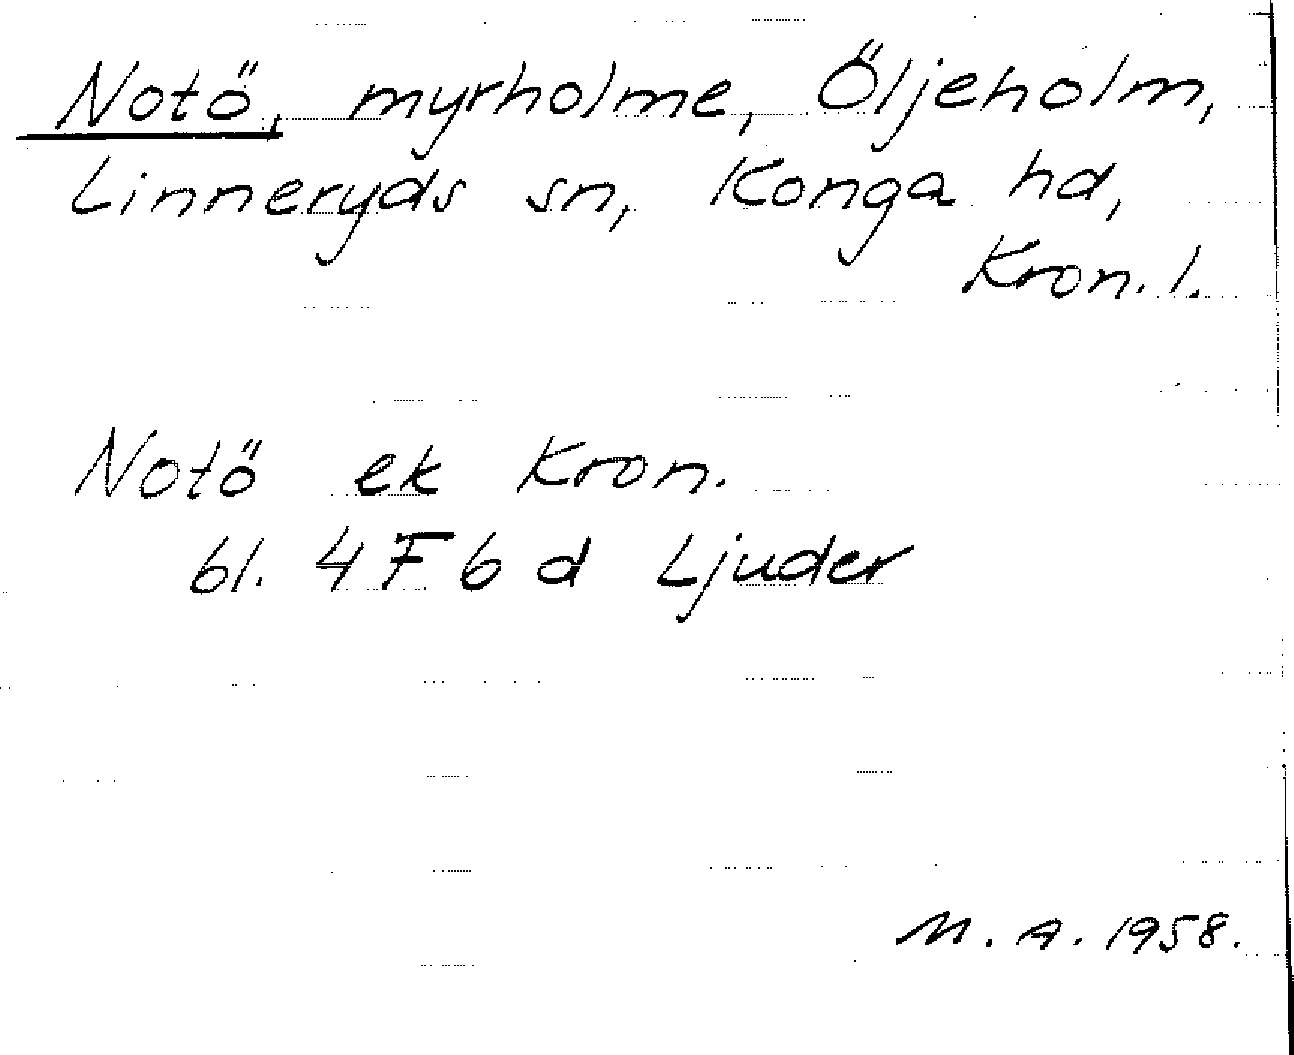 Notö, myrholme, Öljeholm,
Linneryds sn, Konga hd,
Kron. l.
Notö ek Kron.
bl. 4 F 6 d Ljuder
M. A. 1958.